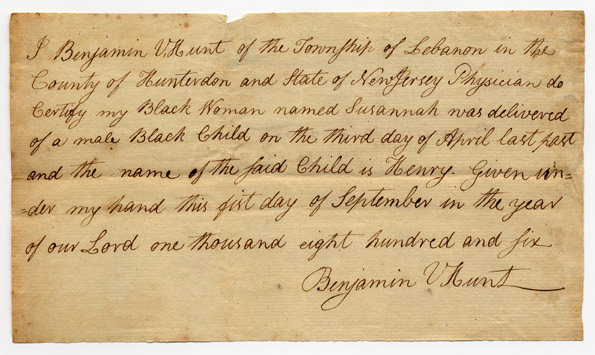 I Benjamin V Hunt of the Township of Lebanon in the
County of Hunterdon and State of New Jersey Physician do
Certify my Black Woman named Susannah was delivered
of a male Black Child on the third day of April last past
and the name of the said Child is Henry. Given un=
=der my hand this fist day of September in the year
of our Lord one thousand eight hundred and six
Benjamin V Hunt